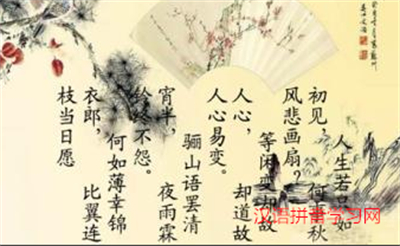 人生若只如
初见，何事秋
风悲画扇？
等闲变却故
人心，却道故
人心易变。
骊山语罢清
宵半，夜雨霖
铃终不怨。
何如薄幸锦
衣郎，比翼连
枝当日愿
汉语拼音学习网